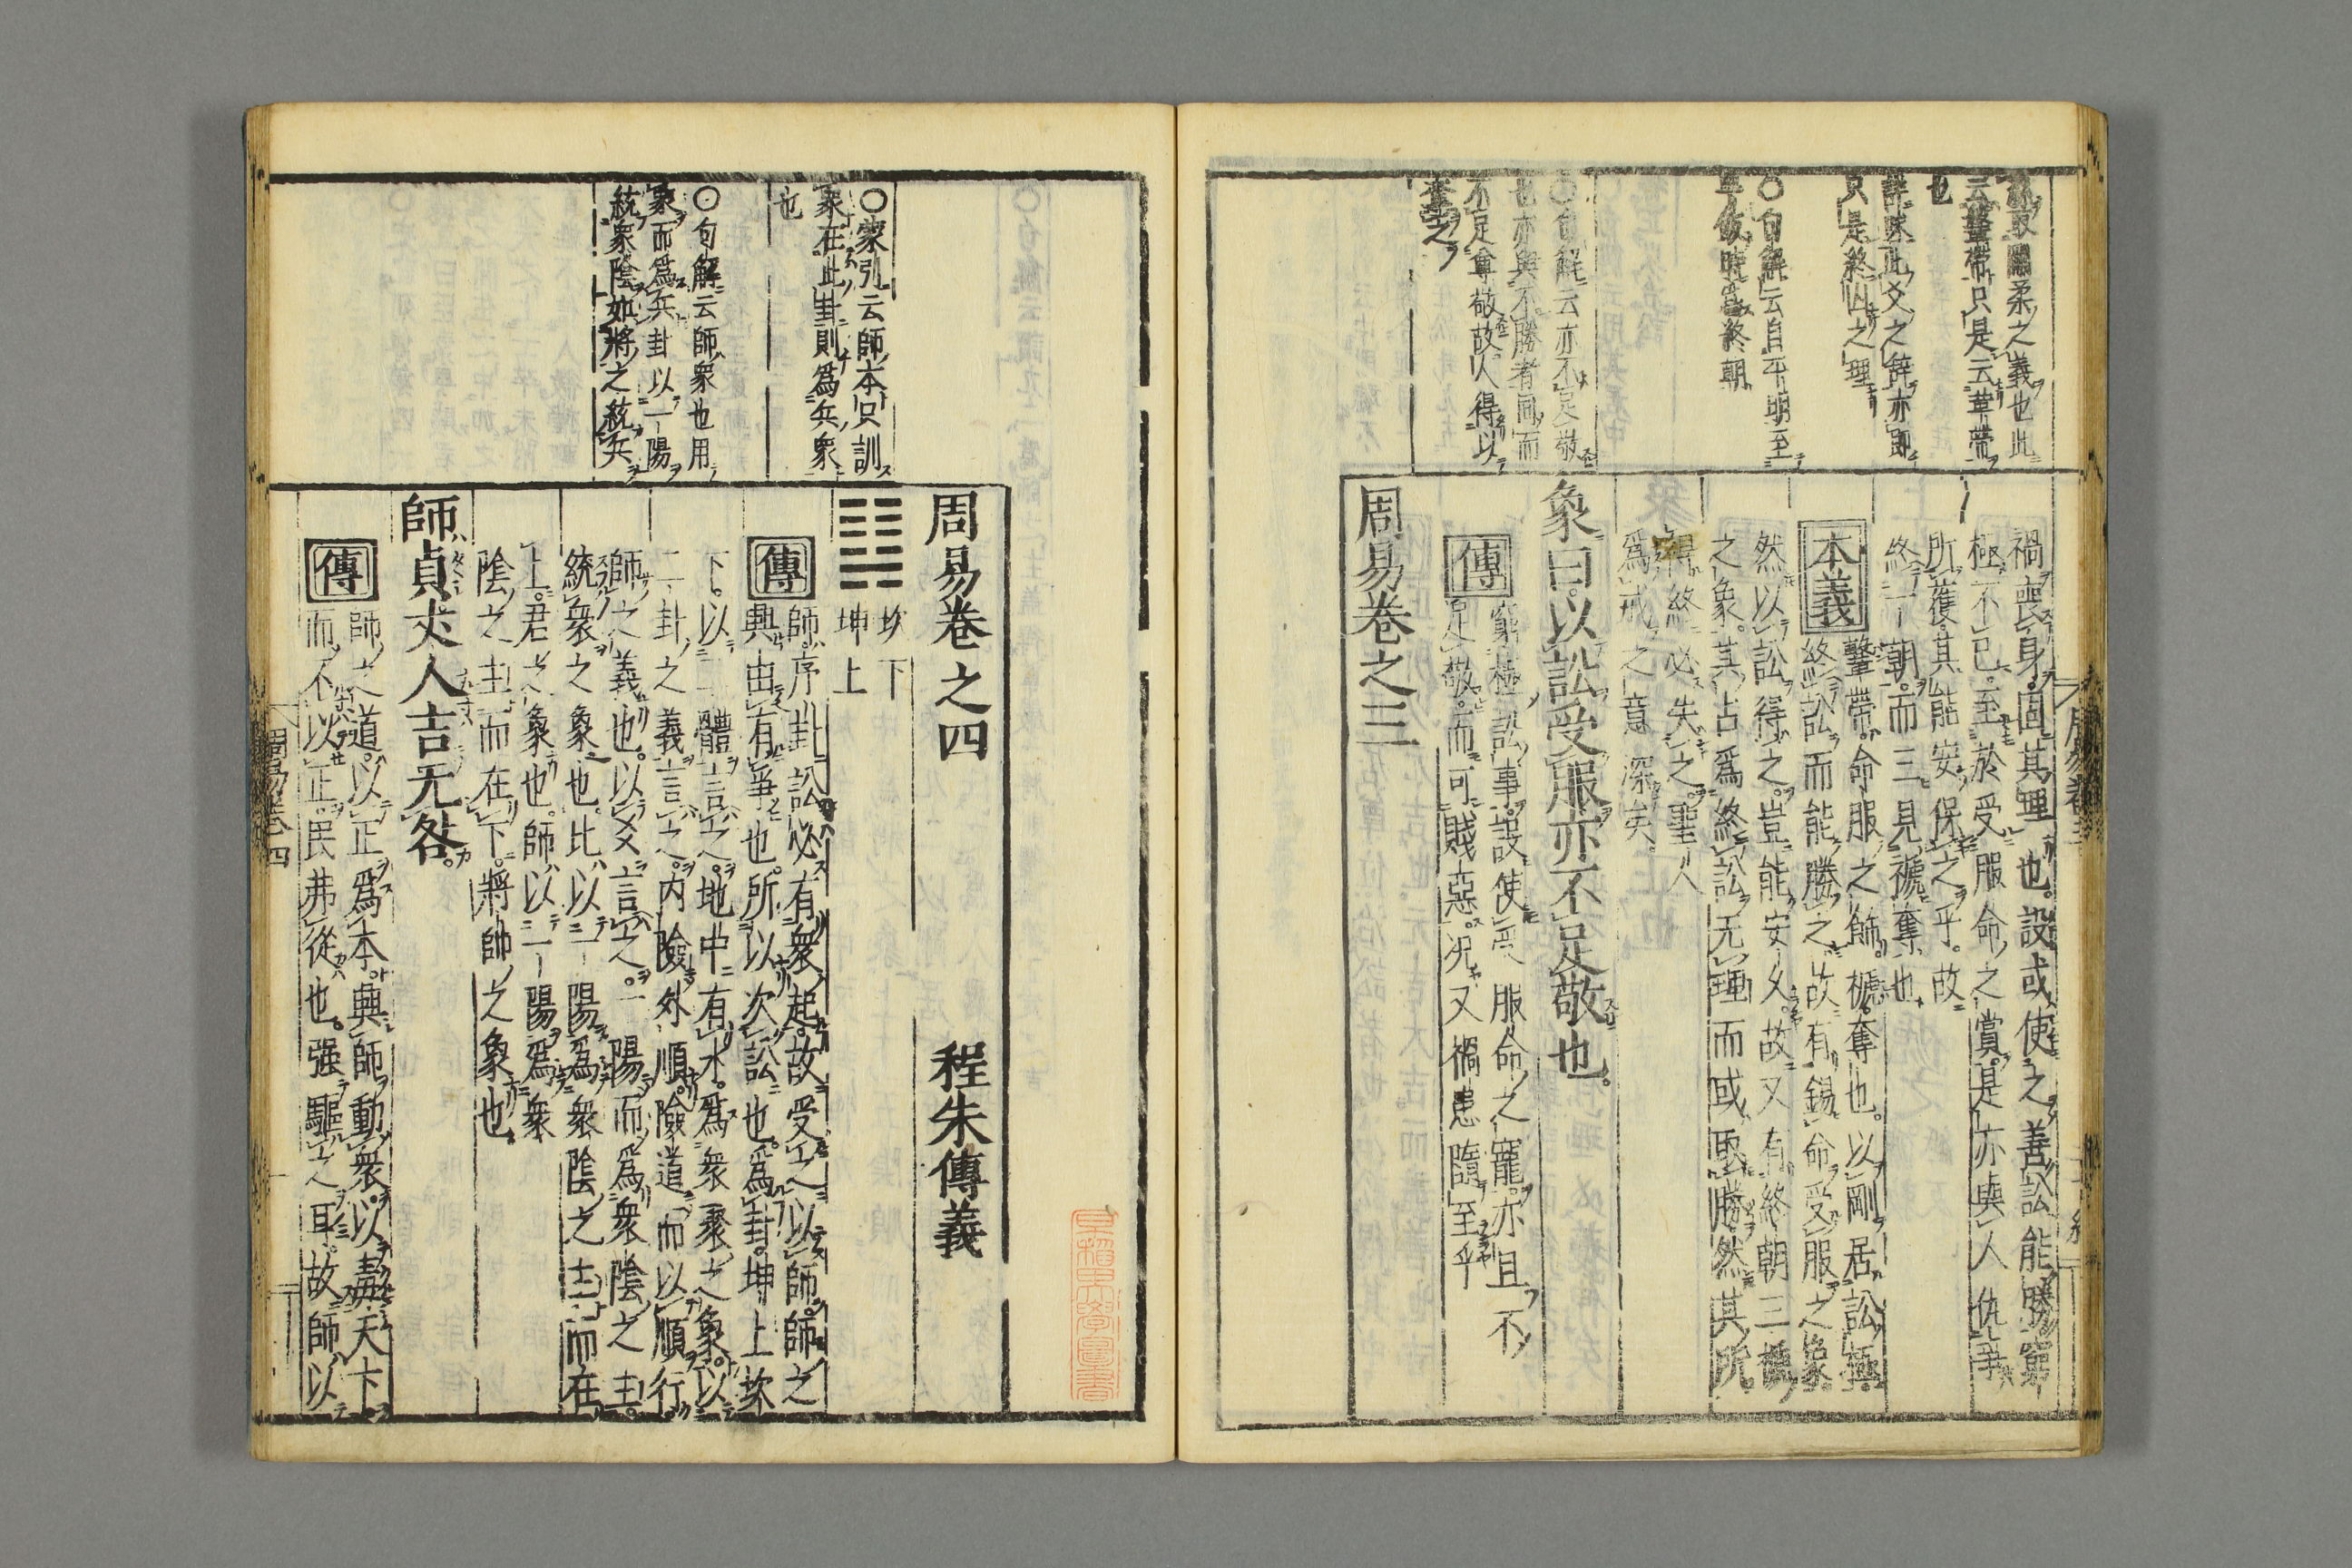 禍喪身固其理也設或使之善訟能勝窮
極不已至於受服命之賞是亦與人仇爭
所獲其能安保之乎故
終一朝而三見褫奪也
本義
鞶帶命服之飾褫奪也以剛居訟極
終訟而能勝之故有錫命受服之象
然以訟得之豈能安久故又有終朝三褫
之象其占爲終訟无理而或取勝然其所
得終必失之聖人
爲戒之意深矣
象曰以訟受服亦不足敬也
傳
窮極訟事設使受服命之寵亦且不
足敬而可賤惡况又禍患隨至乎
周易卷之三
云鞶帶只是云革帶
也
詳味此爻之辭亦即
只是終凶之理
○句解云自平明至
終朝
○句解云亦不足敬
也亦與不勝者同而
不足尊敬故人得以
奪之
周易卷之四
程朱傳義
坎下
坤上
傳
師序卦訟必有衆起故受之以師師之
興由有爭也所以次訟也爲卦坤上坎
下以二體言之地中有水爲衆聚之象以
二卦之義言之内險外順險道而以順行
師之義也以爻言之一陽而爲衆陰之主
統衆之象也比以一陽爲衆陰之主而在
上君之象也師以一陽爲衆
陰之主而在下將帥之象也
師貞丈人吉无咎
傳
師之道以正爲本興師動衆以毒天下
而不以正民弗從也强驅之耳故師以
○蒙引云師本只訓
衆在此卦則爲兵衆
也
○句解云師衆也用
衆而爲兵卦以一陽
統衆陰如將之統兵
周易卷四
早稻田大學圖書